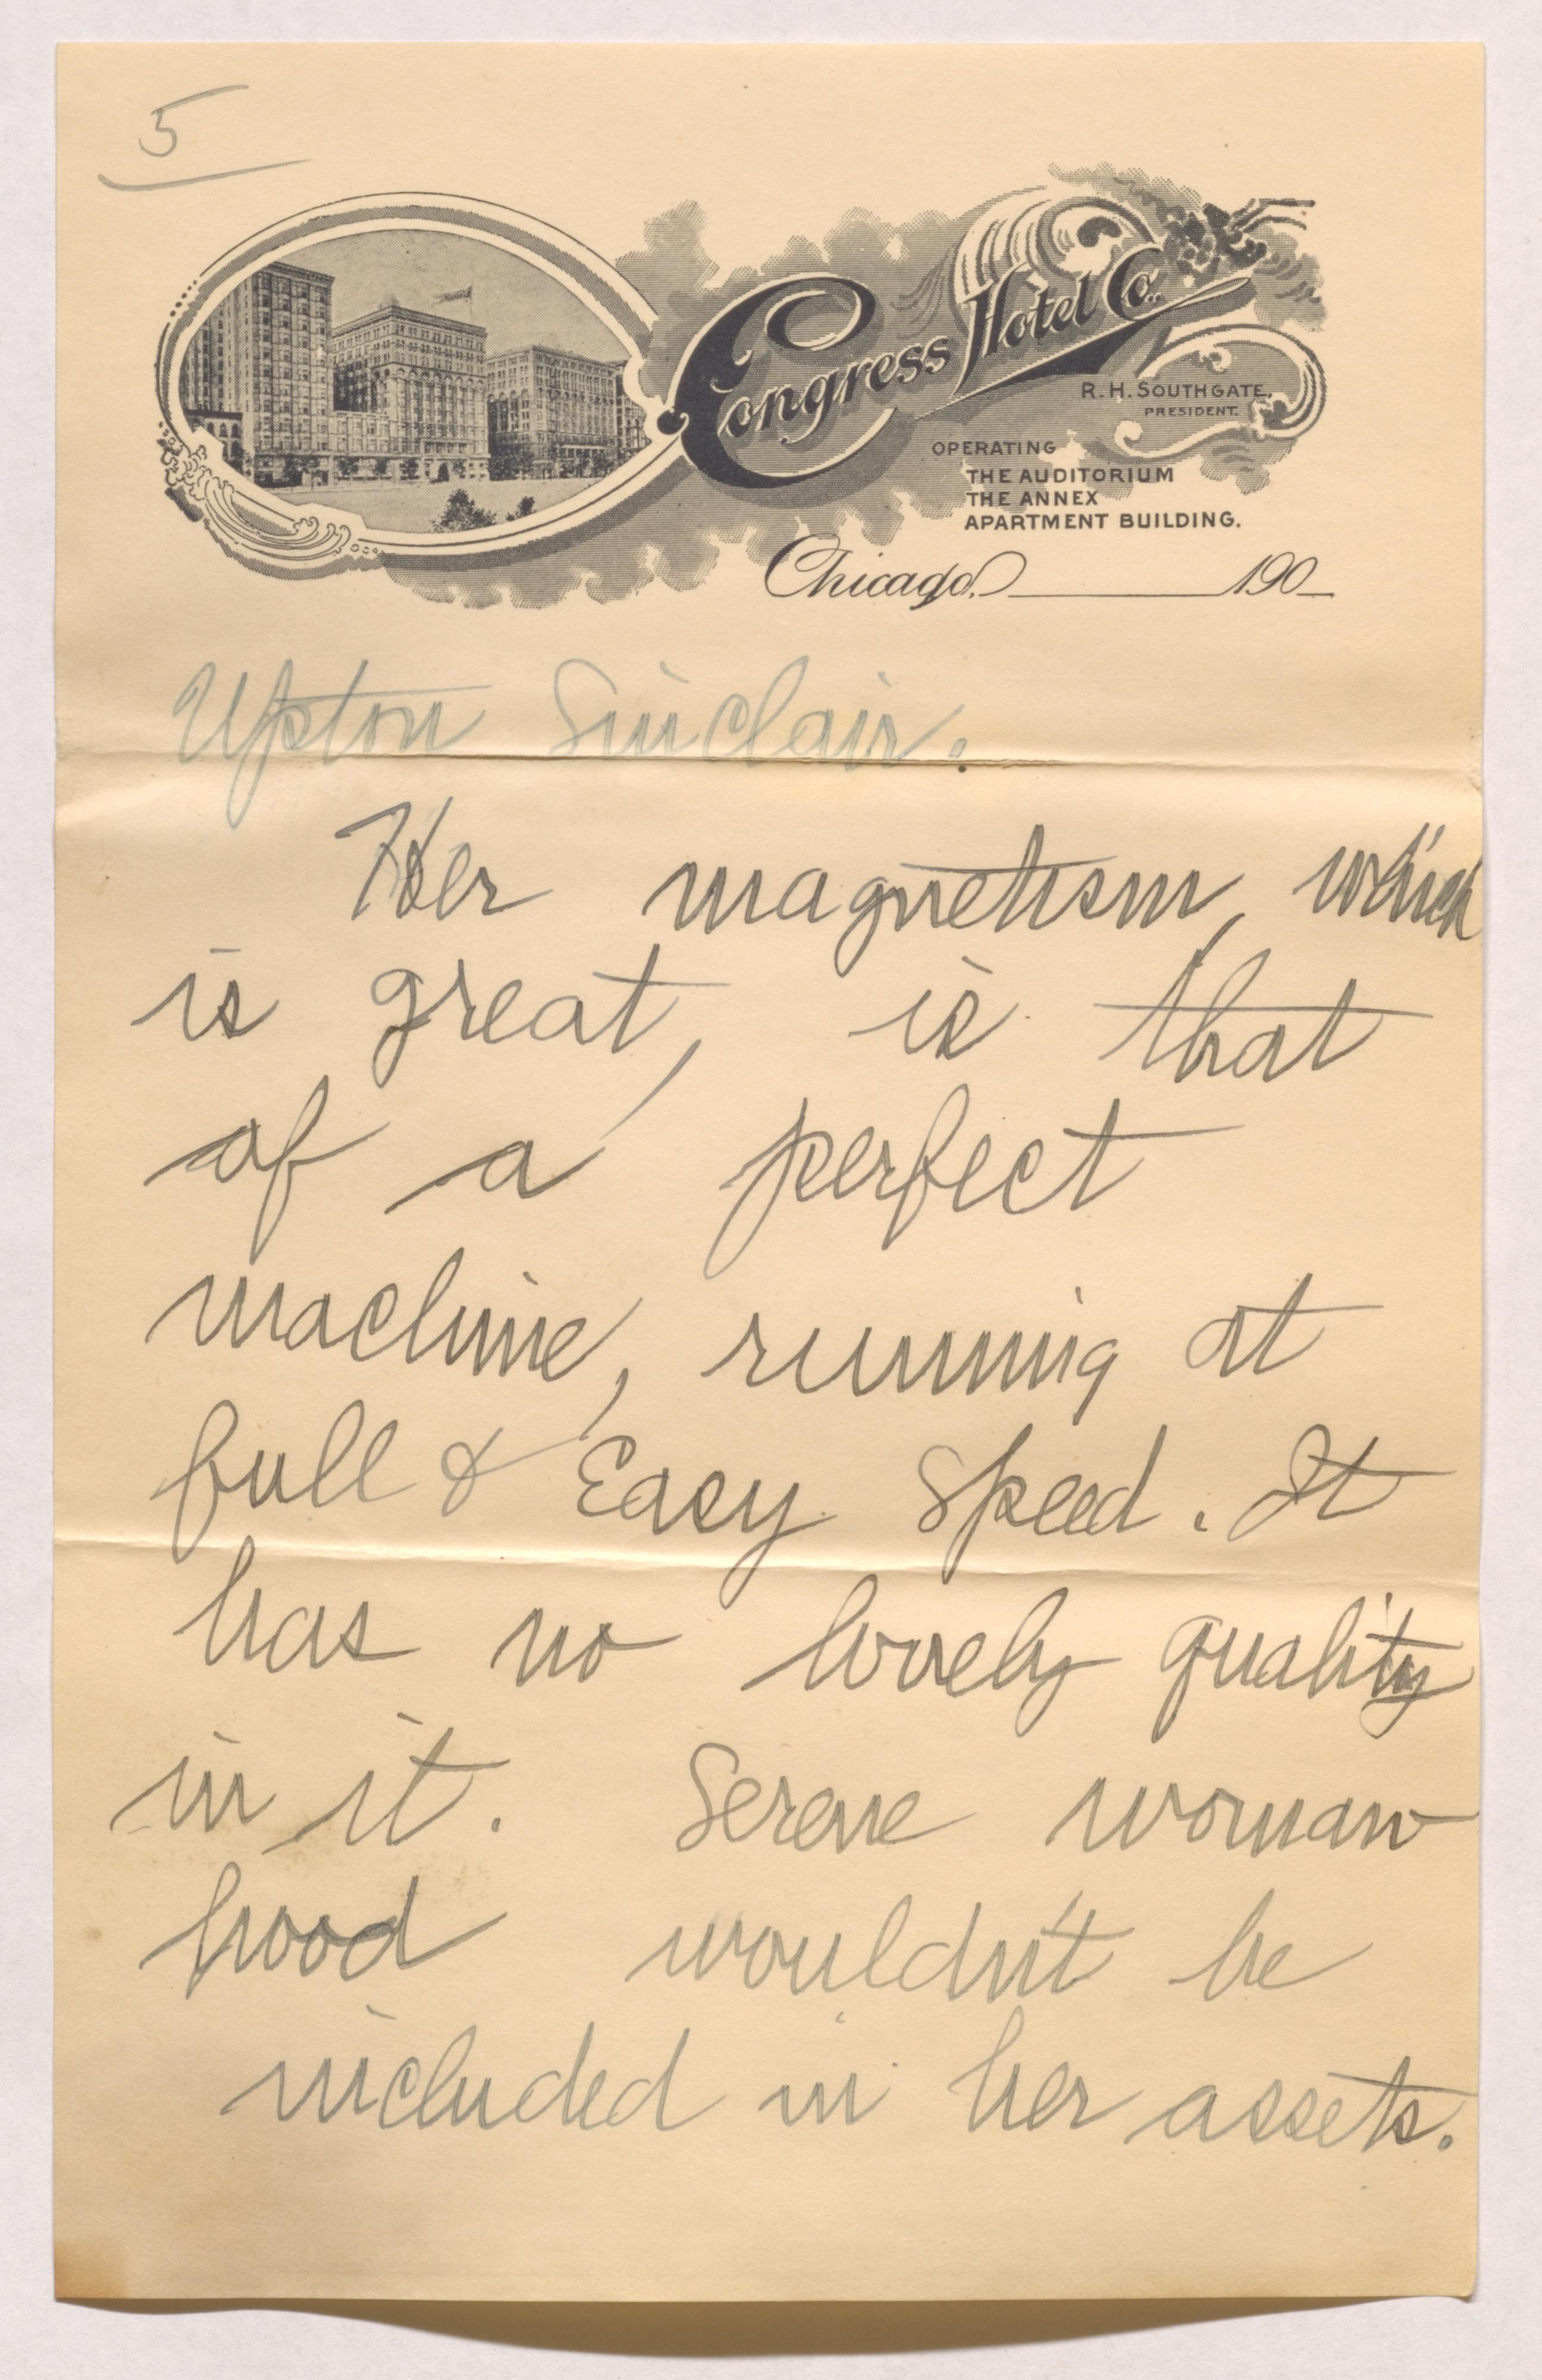 5
Congress Hotel Co.
R. H. SOUTHGATE,
PRESIDENT.
OPERATING
THE AUDITORIUM
THE ANNEX
APARTMENT BUILDING.
Chicago, 190
Upton Sinclair:
Her magnetism, which
is great, is that
of a perfect
machine, running at
full & Easy Speed. It
has no lovely quality
in it. Serene woman
hood wouldn't be
included in her assets.